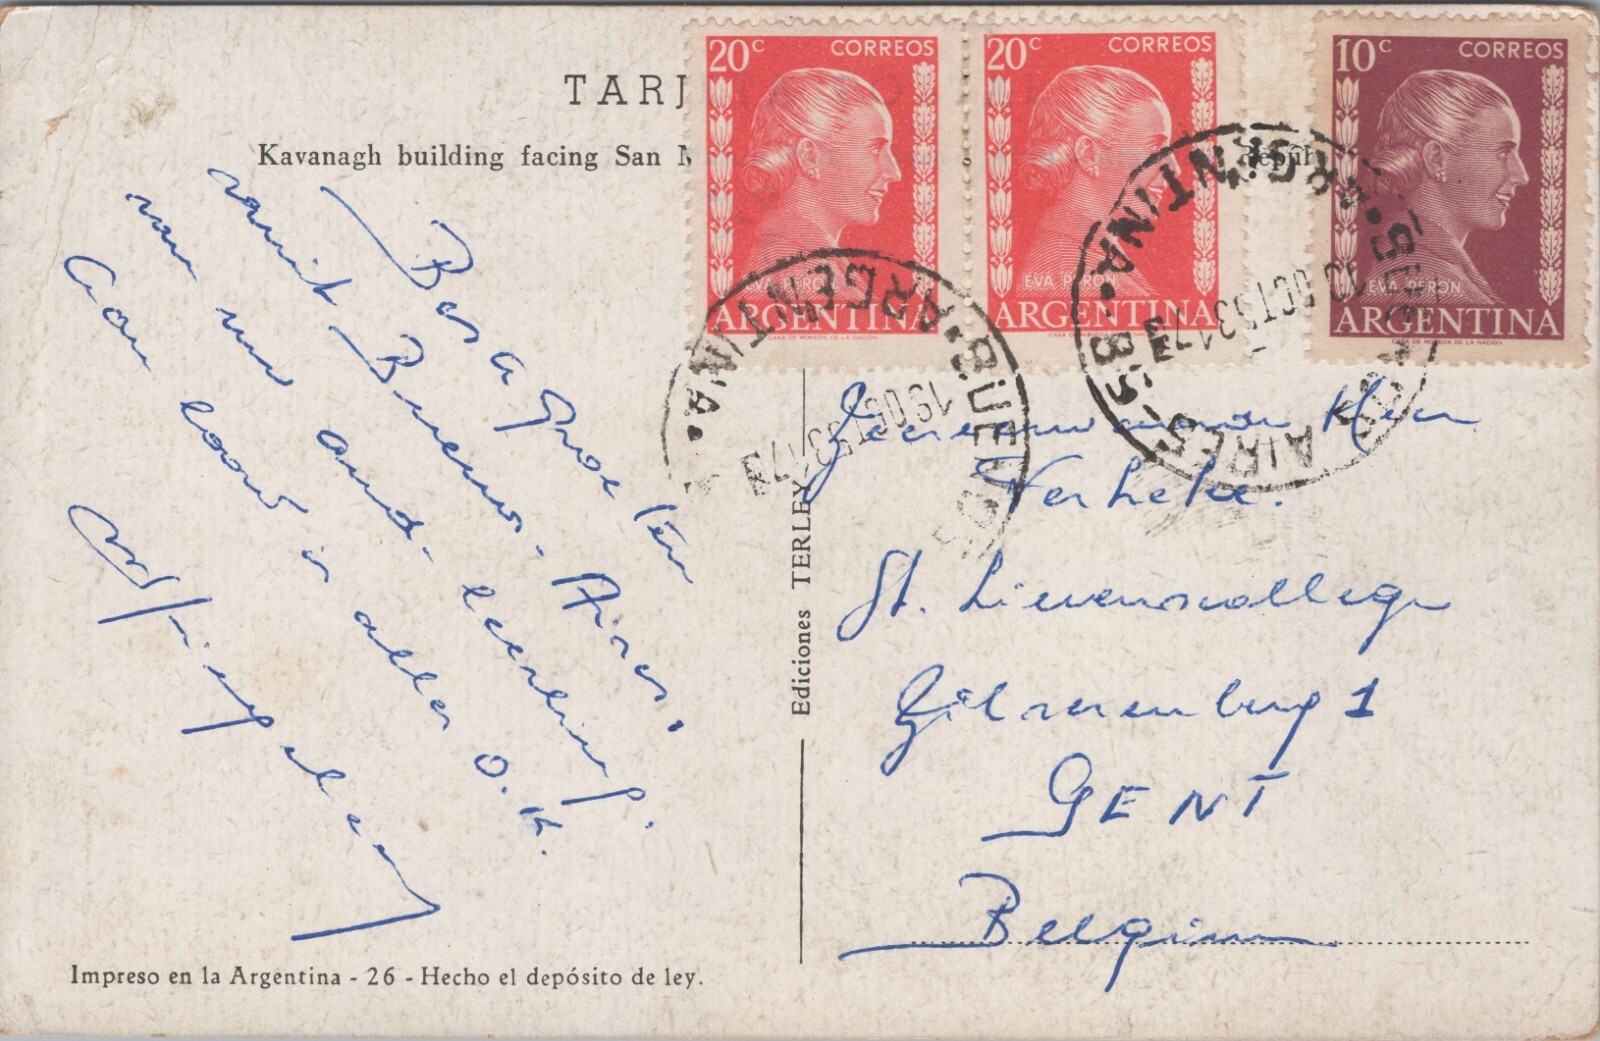 20c CORREOS
EVA PERON
ARGENTINA
CASA DE MONEDA DE LA NACION
20c CORREOS
EVA PERON
ARGENTINA
CASA DE MONEDA DE LA NACION
10c CORREOS
EVA PERON
ARGENTINA
CASA DE MONEDA DE LA NACION
TARJ
Kavanagh building facing San
Repúb
BUENOS AIRES ARGENTINA
19 OCT 53 17
BUENOS ARGENTINA
19 OCT 53 17
Beste Groeten
vanuit Buenos-Aires,
van uw oud-leerling.
Gom loond is alles O.K.
Eerwaarde Heer
Verheke.
St. Lievenscollege
Zilverenberg 1
GENT
Belgium
Ediciones TERLEY
Impreso en la Argentina - 26 - Hecho el depósito de ley.